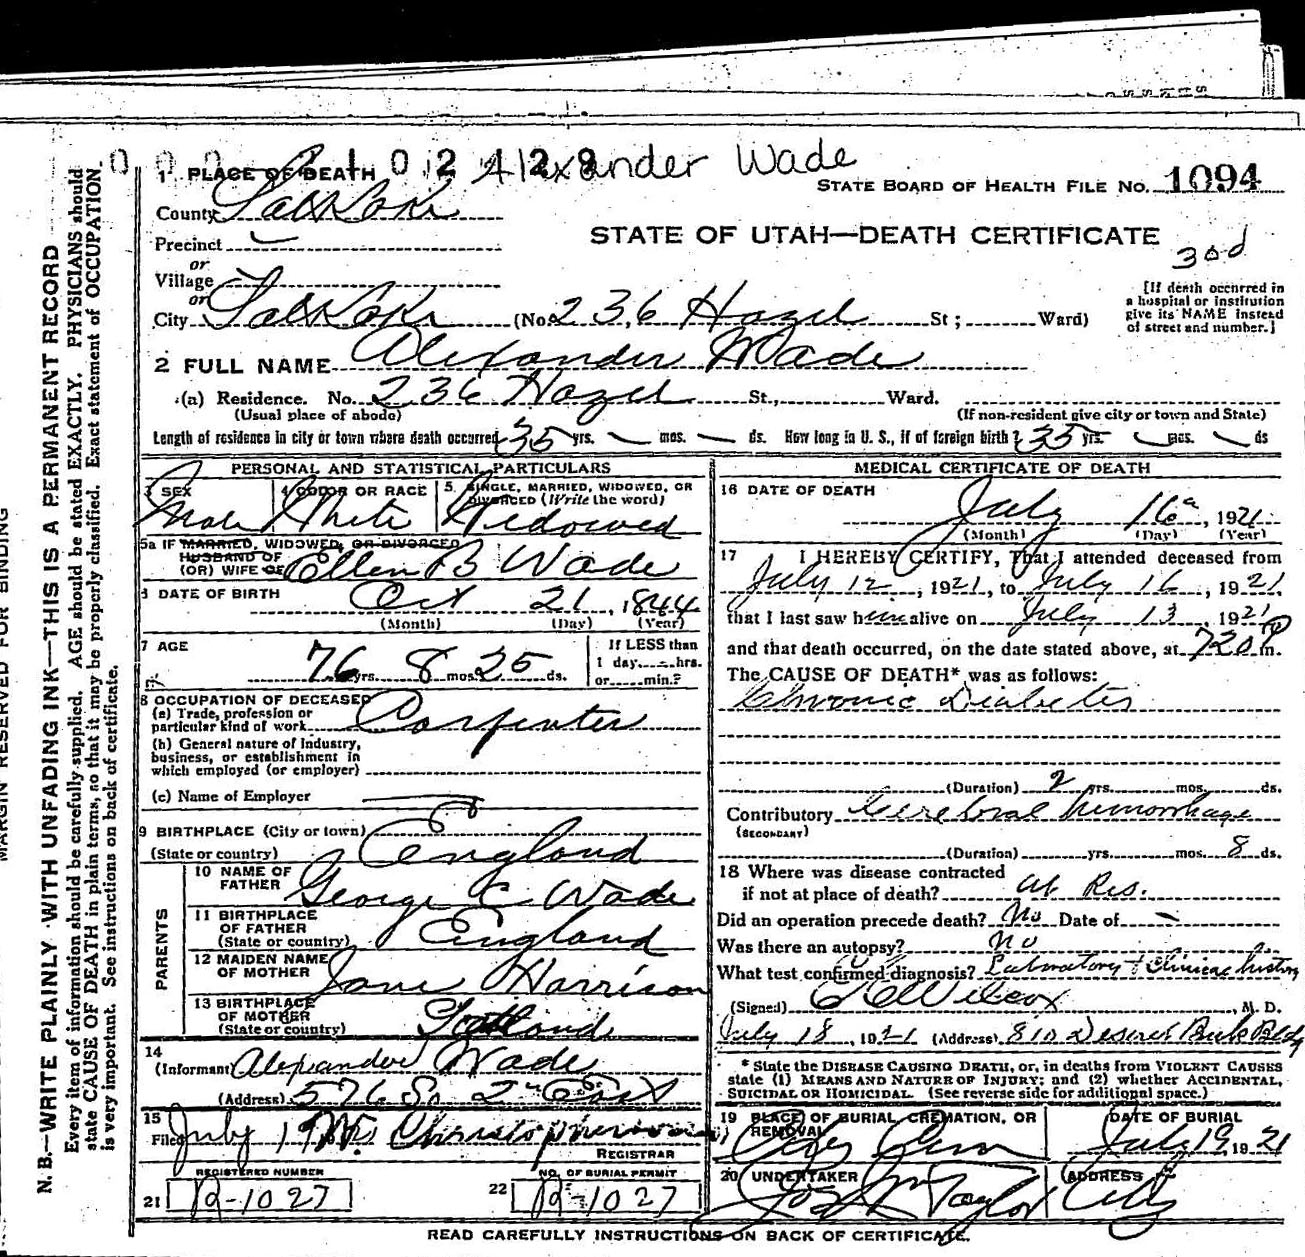 Alexander Wade
1 PLACE OF DEATH
STATE BOARD OF HEALTH FILE No. 1094
County Salt Lake
Precinct
or
Village
or
STATE OF UTAH—DEATH CERTIFICATE
[If death occurred in a hospital or institution give its NAME instead of street and number.]
City Salt Lake (No. 236 Hazel St; Ward)
2 FULL NAME Alexander Wade
(a) Residence. No. 236 Hazel St., Ward.
(Usual place of abode) (If non-resident give city or town and State)
Length of residence in city or town where death occurred 35 yrs. — mos. — ds. How long in U. S., if of foreign birth? 35 yrs. — mos. — ds
PERSONAL AND STATISTICAL PARTICULARS
3 SEX Male
4 COLOR OR RACE White
5. SINGLE, MARRIED, WIDOWED, OR DIVORCED (Write the word) Widowed
5a IF MARRIED, WIDOWED, OR DIVORCED
HUSBAND OF
(OR) WIFE OF Ellen B Wade
DATE OF BIRTH Oct 21, 1844
(Month) (Day) (Year)
7 AGE 76 yrs. 8 mos. 25 ds.
If LESS than
1 day, hrs.
or min.?
8 OCCUPATION OF DECEASED
(a) Trade, profession or
particular kind of work Carpenter
(b) General nature of Industry,
business, or establishment in
which employed (or employer)
(c) Name of Employer
9 BIRTHPLACE (City or town)
(State or country) England
PARENTS
10 NAME OF FATHER George C Wade
11 BIRTHPLACE OF FATHER
(State or country) England
12 MAIDEN NAME OF MOTHER Jane Harrison
13 BIRTHPLACE OF MOTHER
(State or country) Scotland
14
(Informant Alexander Wade
(Address) 576 So 2nd East
15
Filed July 19 Christopherson
REGISTRAR
REGISTERED NUMBER
21 R-1027
NO. OF BURIAL PERMIT
22 R-1027
MEDICAL CERTIFICATE OF DEATH
16 DATE OF DEATH
July 16, 1921
(Month) (Day) (Year)
17 I HEREBY CERTIFY, That I attended deceased from
July 12, 1921, to July 16, 1921,
that I last saw him alive on July 13, 1921
and that death occurred, on the date stated above, at 720 P m.
The CAUSE OF DEATH* was as follows:
Chronic Diabetes
(Duration) 2 yrs. mos. ds.
Contributory Cerebral hemorrhage
(SECONDARY)
(Duration) yrs. mos. 8 ds.
18 Where was disease contracted
if not at place of death? at Res.
Did an operation precede death? No Date of —
Was there an autopsy? no
What test confirmed diagnosis? Laboratory + Clinical history
(Signed) Wilcox, M. D.
July 18, 1921 (Address) 810 Deseret Bank Bldg
* State the DISEASE CAUSING DEATH, or, in deaths from VIOLENT CAUSES
state (1) MEANS AND NATURE OF INJURY; and (2) whether ACCIDENTAL,
SUICIDAL OR HOMICIDAL. (See reverse side for additional space.)
19 PLACE OF BURIAL CREMATION, OR REMOVAL City Cem
DATE OF BURIAL July 19, 1921
20 UNDERTAKER Jos Wm Taylor
ADDRESS City
READ CAREFULLY INSTRUCTIONS ON BACK OF CERTIFICATE.
MARGIN RESERVED FOR BINDING
N. B.—WRITE PLAINLY WITH UNFADING INK—THIS IS A PERMANENT RECORD
Every item of information should be carefully supplied. AGE should be stated EXACTLY. PHYSICIANS should
state CAUSE OF DEATH in plain terms, so that it may be properly classified. Exact statement of OCCUPATION
is very important. See instructions on back of certificate.